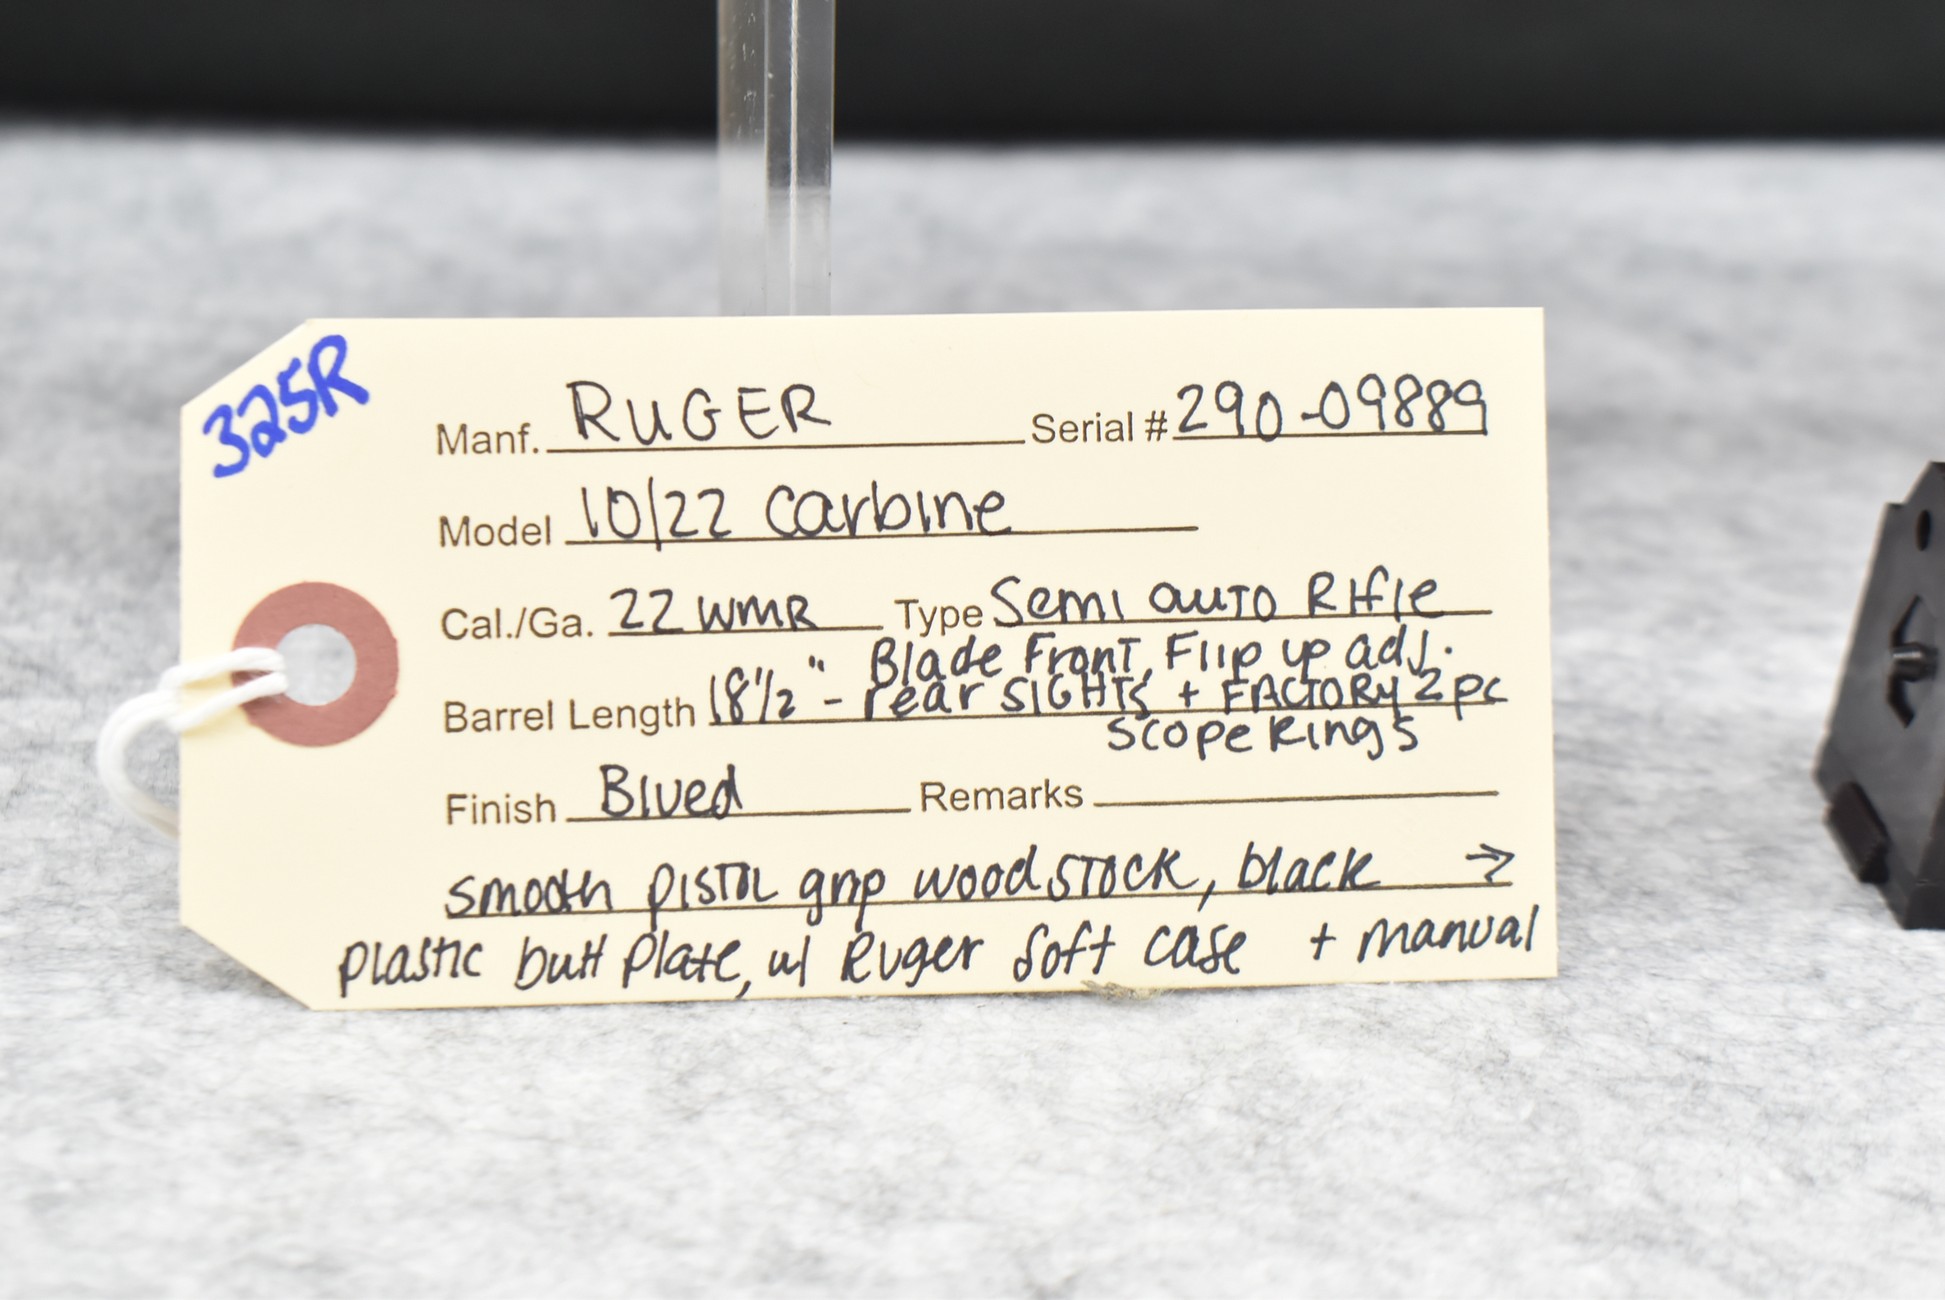 325R
Manf. RUGER Serial # 290-09889
Model 10/22 Carbine
Cal./Ga. 22 WMR Type Semi auto Rifle
Blade Front, Flip up adj.
Barrel Length 18 1/2" - rear SIGHTS + FACTORY 2 pc
Scope Rings
Finish Blued Remarks
smooth pistol grip wood stock, black →
plastic butt plate, w/ Ruger soft case + manual